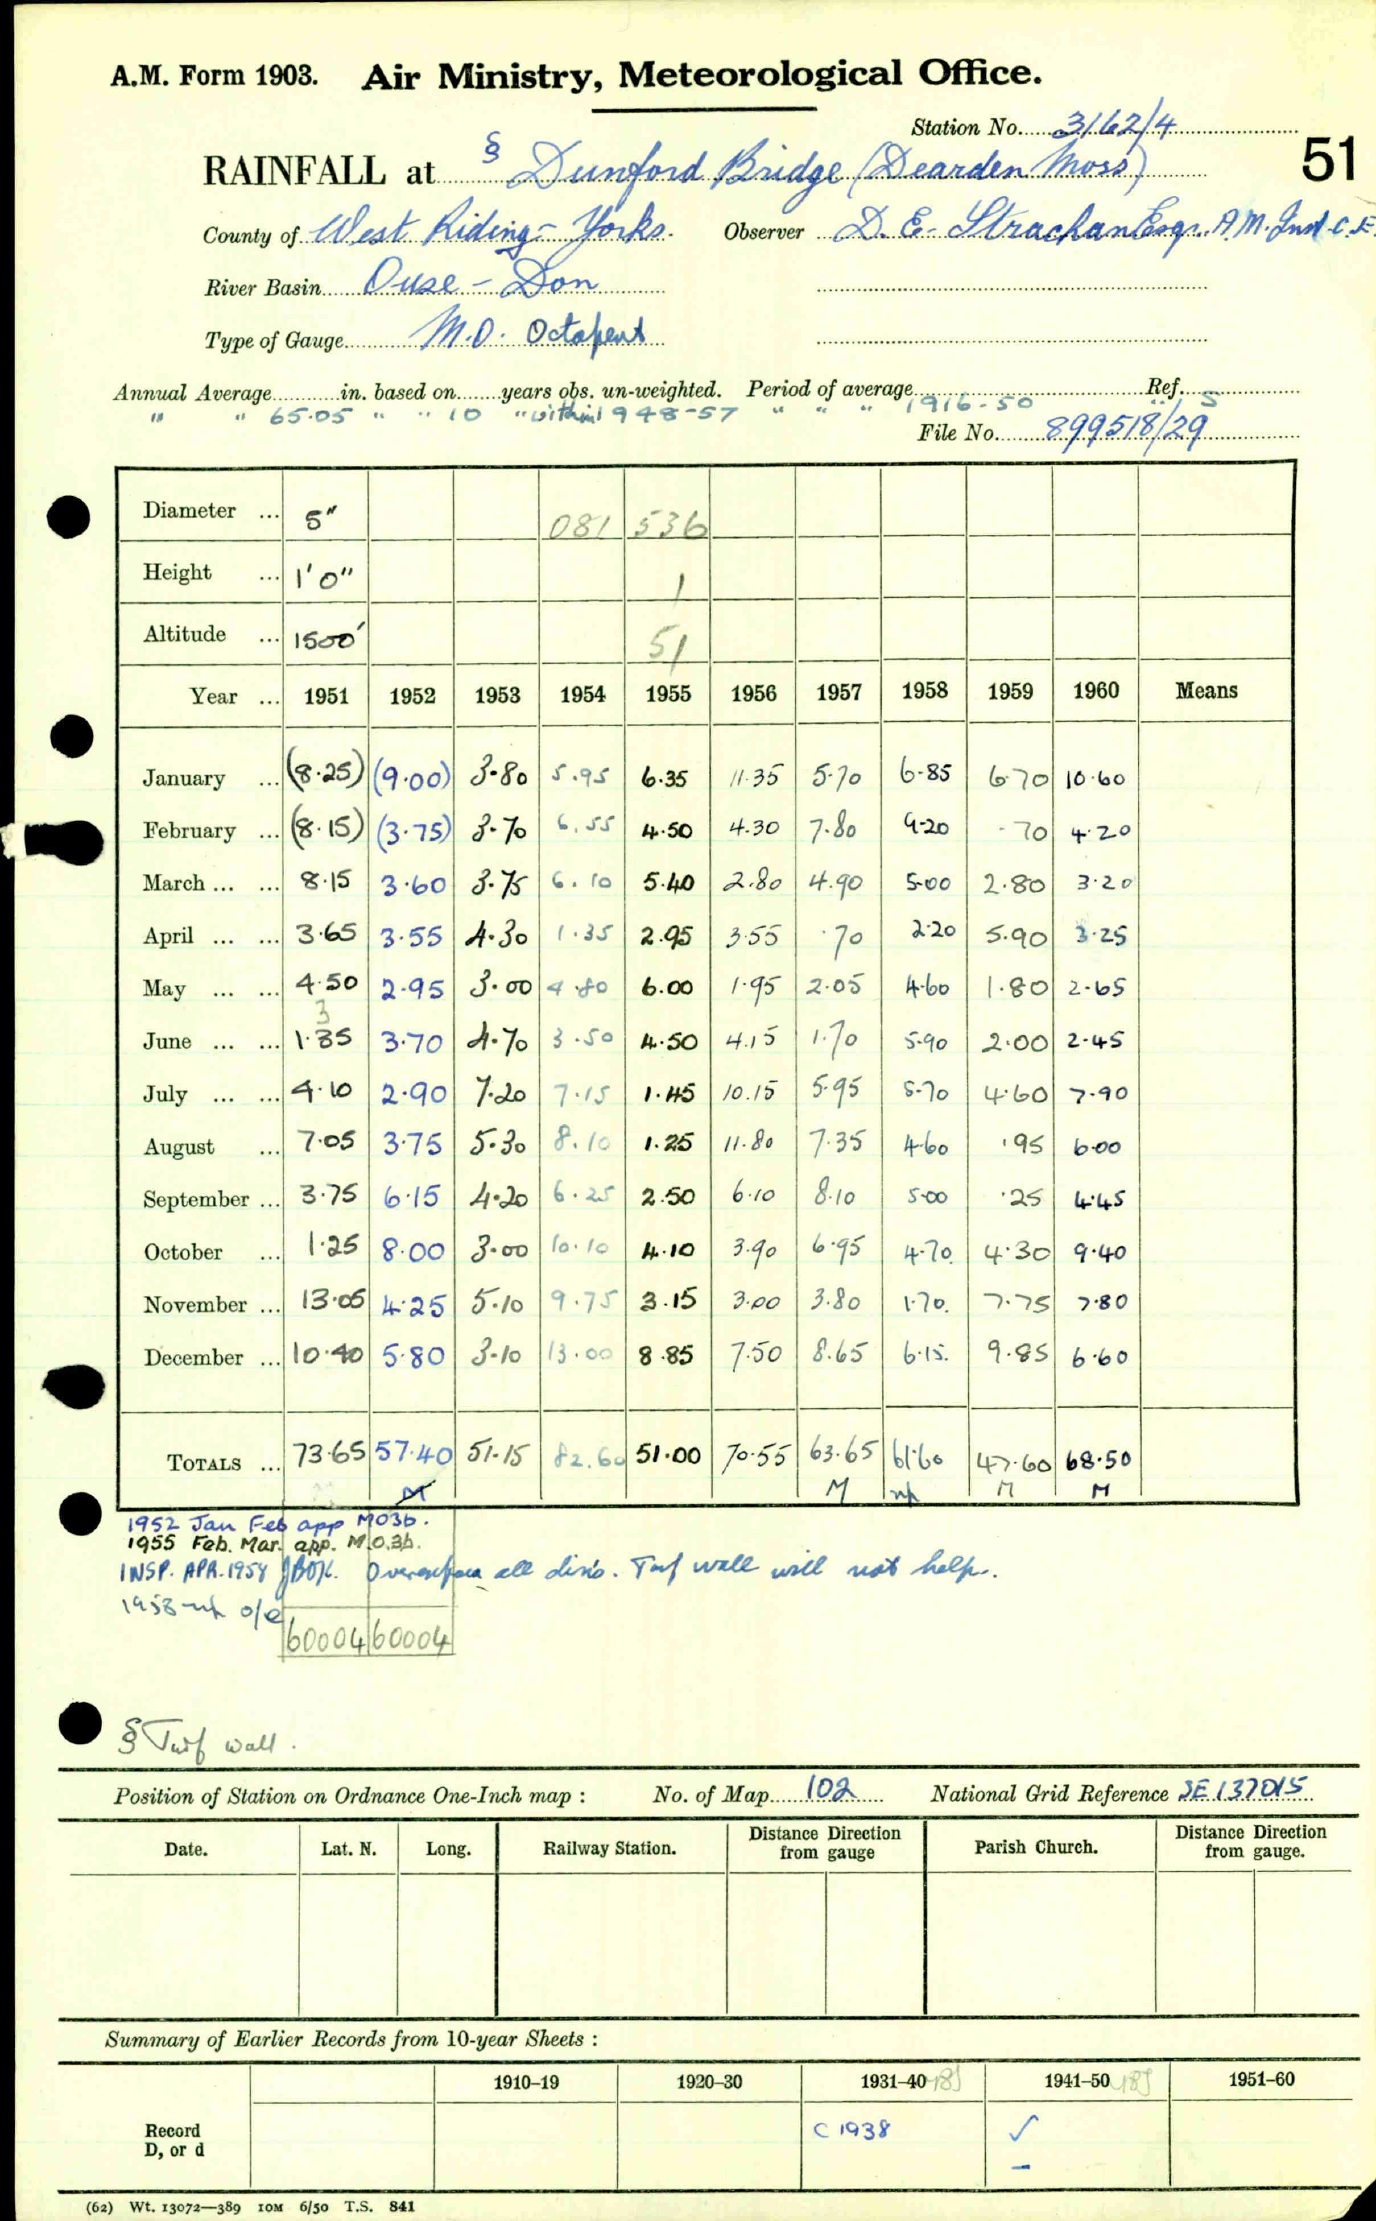 A.M. Form 1903. Air Ministry, Meteorological Office.
Station No. 3162/4
51
RAINFALL at § Dunford Bridge (Dearden Moss)
County of West Riding - Yorks. Observer D. E. Strachan Esqr. A.M. Inst. C.E.
River Basin Ouse - Don
Type of Gauge M.O. Octapent
Annual Average in. based on years obs. un-weighted. Period of average Ref.
" " 65.05 " " 10 " within 1948-57 " " " 1916-50 " 5
File No. 899518/29
Diameter ... 5" 081 536
Height ... 1'0" 1
Altitude ... 1500' 51
Year ... 1951 1952 1953 1954 1955 1956 1957 1958 1959 1960 Means
January ... (8.25) (9.00) 3.80 5.95 6.35 11.35 5.70 6.85 6.70 10.60
February ... (8.15) (3.75) 3.70 6.55 4.50 4.30 7.80 9.20 .70 4.20
March ... ... 8.15 3.60 3.75 6.10 5.40 2.80 4.90 5.00 2.80 3.20
April ... ... 3.65 3.55 4.30 1.35 2.95 3.55 .70 2.20 5.90 3.25
May ... ... 4.50 2.95 3.00 4.80 6.00 1.95 2.05 4.60 1.80 2.65
3
June ... ... 1.35 3.70 4.70 3.50 4.50 4.15 1.70 5.90 2.00 2.45
July ... ... 4.10 2.90 7.20 7.15 1.45 10.15 5.95 5.70 4.60 7.90
August ... 7.05 3.75 5.30 8.10 1.25 11.80 7.35 4.60 .95 6.00
September ... 3.75 6.15 4.20 6.25 2.50 6.10 8.10 5.00 .25 4.45
October ... 1.25 8.00 3.00 10.10 4.10 3.90 6.95 4.70 4.30 9.40
November ... 13.05 4.25 5.10 9.75 3.15 3.00 3.80 1.70 7.75 7.80
December ... 10.40 5.80 3.10 13.00 8.85 7.50 8.65 6.15 9.85 6.60
TOTALS ... 73.65 57.40 51.15 82.60 51.00 70.55 63.65 61.60 47.60 68.50
M M np M M
1952 Jan Feb app MO3b.
1955 Feb. Mar. app. M.O.3b.
INSP. APR. 1954 all dir'ns. Turf wall will not help.
1958 np o/e
60004 60004
§ Turf wall.
Position of Station on Ordnance One-Inch map : No. of Map 102 National Grid Reference SE 137015
Date. Lat. N. Long. Railway Station. Distance from gauge Direction Parish Church. Distance from gauge. Direction
Summary of Earlier Records from 10-year Sheets :
1910–19 1920–30 1931–40 1941–50 1951–60
Record D, or d C 1938 ✓
–
(62) Wt. 13072—389 10M 6/50 T.S. 841